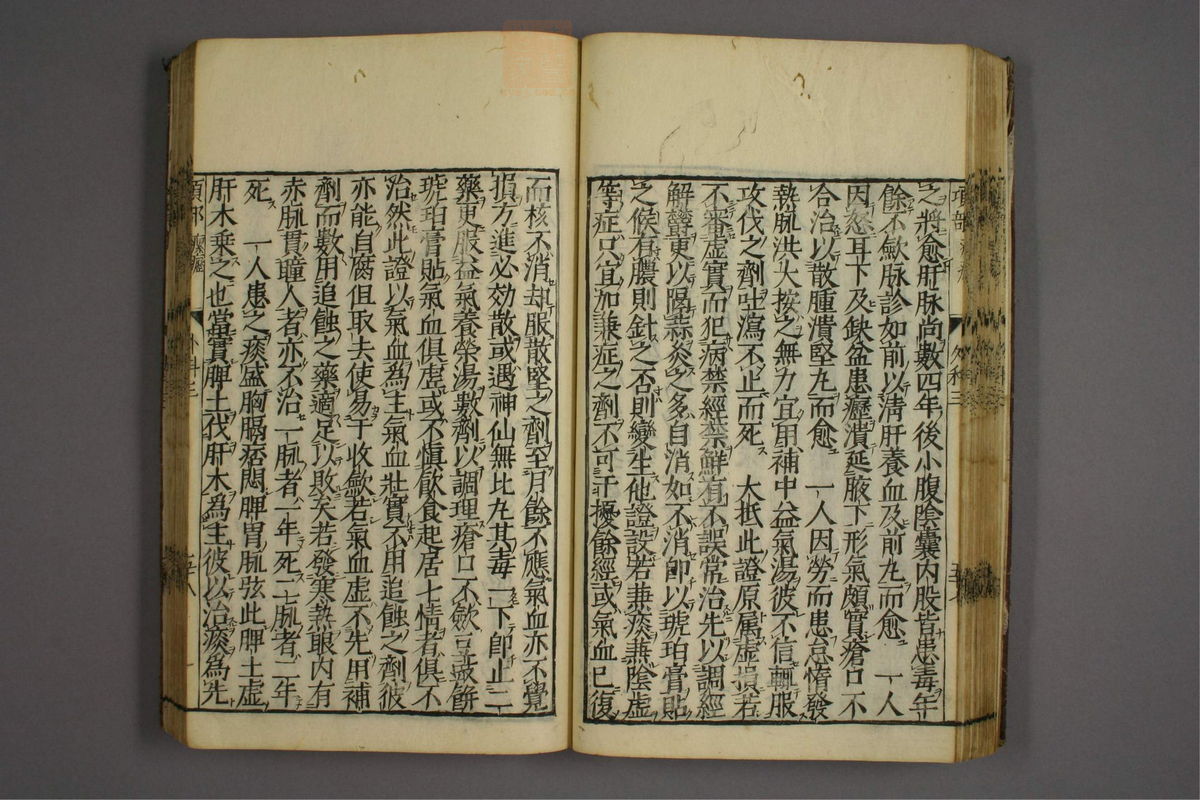 之將愈肝脉尚數四年後小腹陰囊内股皆患毒年
餘不歛脉診如前以清肝養血及前丸而愈　一人
因怒耳下及缺盆患瘰潰延腋下形氣頗實瘡口不
合治以散腫潰堅丸而愈　一人因勞而患怠惰發
熱脉洪大按之無力宜用補中益氣湯彼不信輒服
攻伐之劑吐瀉不止而死　大抵此證原属虚損若
不審虚實而犯病禁經禁鮮有不誤常治先以調經
解欝更以隔蒜灸之多自消如不消即以琥珀膏貼
之候有膿則針之否則變生他證設若兼痰兼陰虚
等症只宜加兼症之劑不可干擾餘經或氣血已復
而核不消却服散堅之劑至月餘不應氣血亦不覺
損方進必効散或遇神仙無比丸其毒一下即止二
藥更服益氣養榮湯數劑以調理瘡口不歛豆豉餅
琥珀膏貼氣血俱虚或不慎飲食起居七情者俱不
治然此證以氣血為主氣血壯實不用追蝕之劑彼
亦能自腐但取去使易于收歛若氣血虚不先用補
劑而數用追蝕之藥適足以敗矣若發寒熱眼内有
赤脉貫瞳人者亦不治一脉者一年死二脉者二年
死　一人患之痰盛胸膈痞悶脾胃脉弦此脾土虚
肝木乗之也當實脾土伐肝木為主彼以治痰為先
項部
外科三
五十八